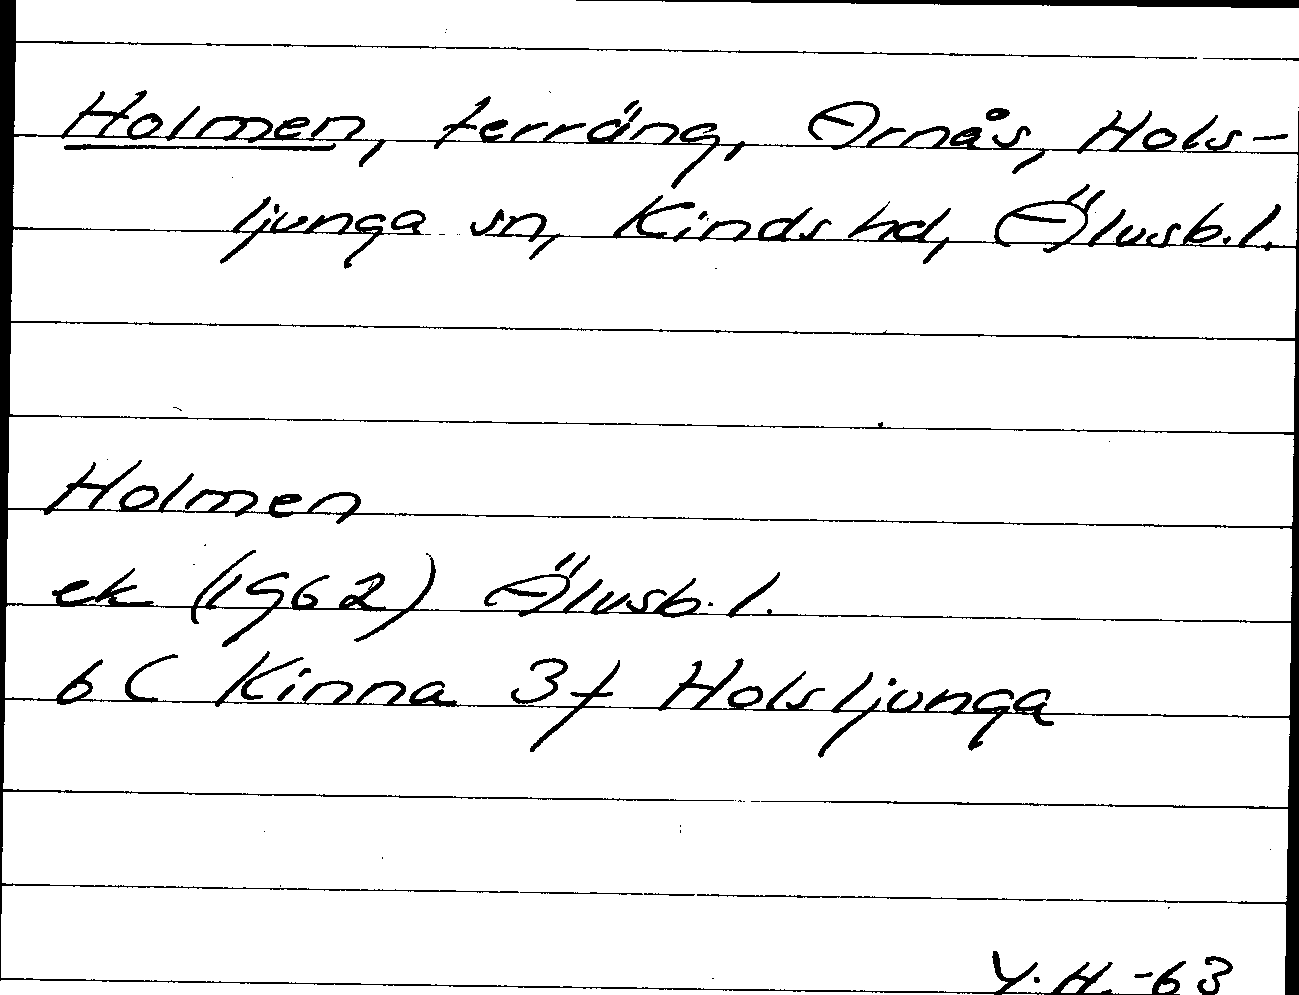 Holmen, terräng, Arnås, Hols-
ljunga sn, Kinds hd, Älvsb. l.
Holmen
ek (1962) Älvsb. l.
6 C Kinna 3f Holsljunga
Y. H. -63